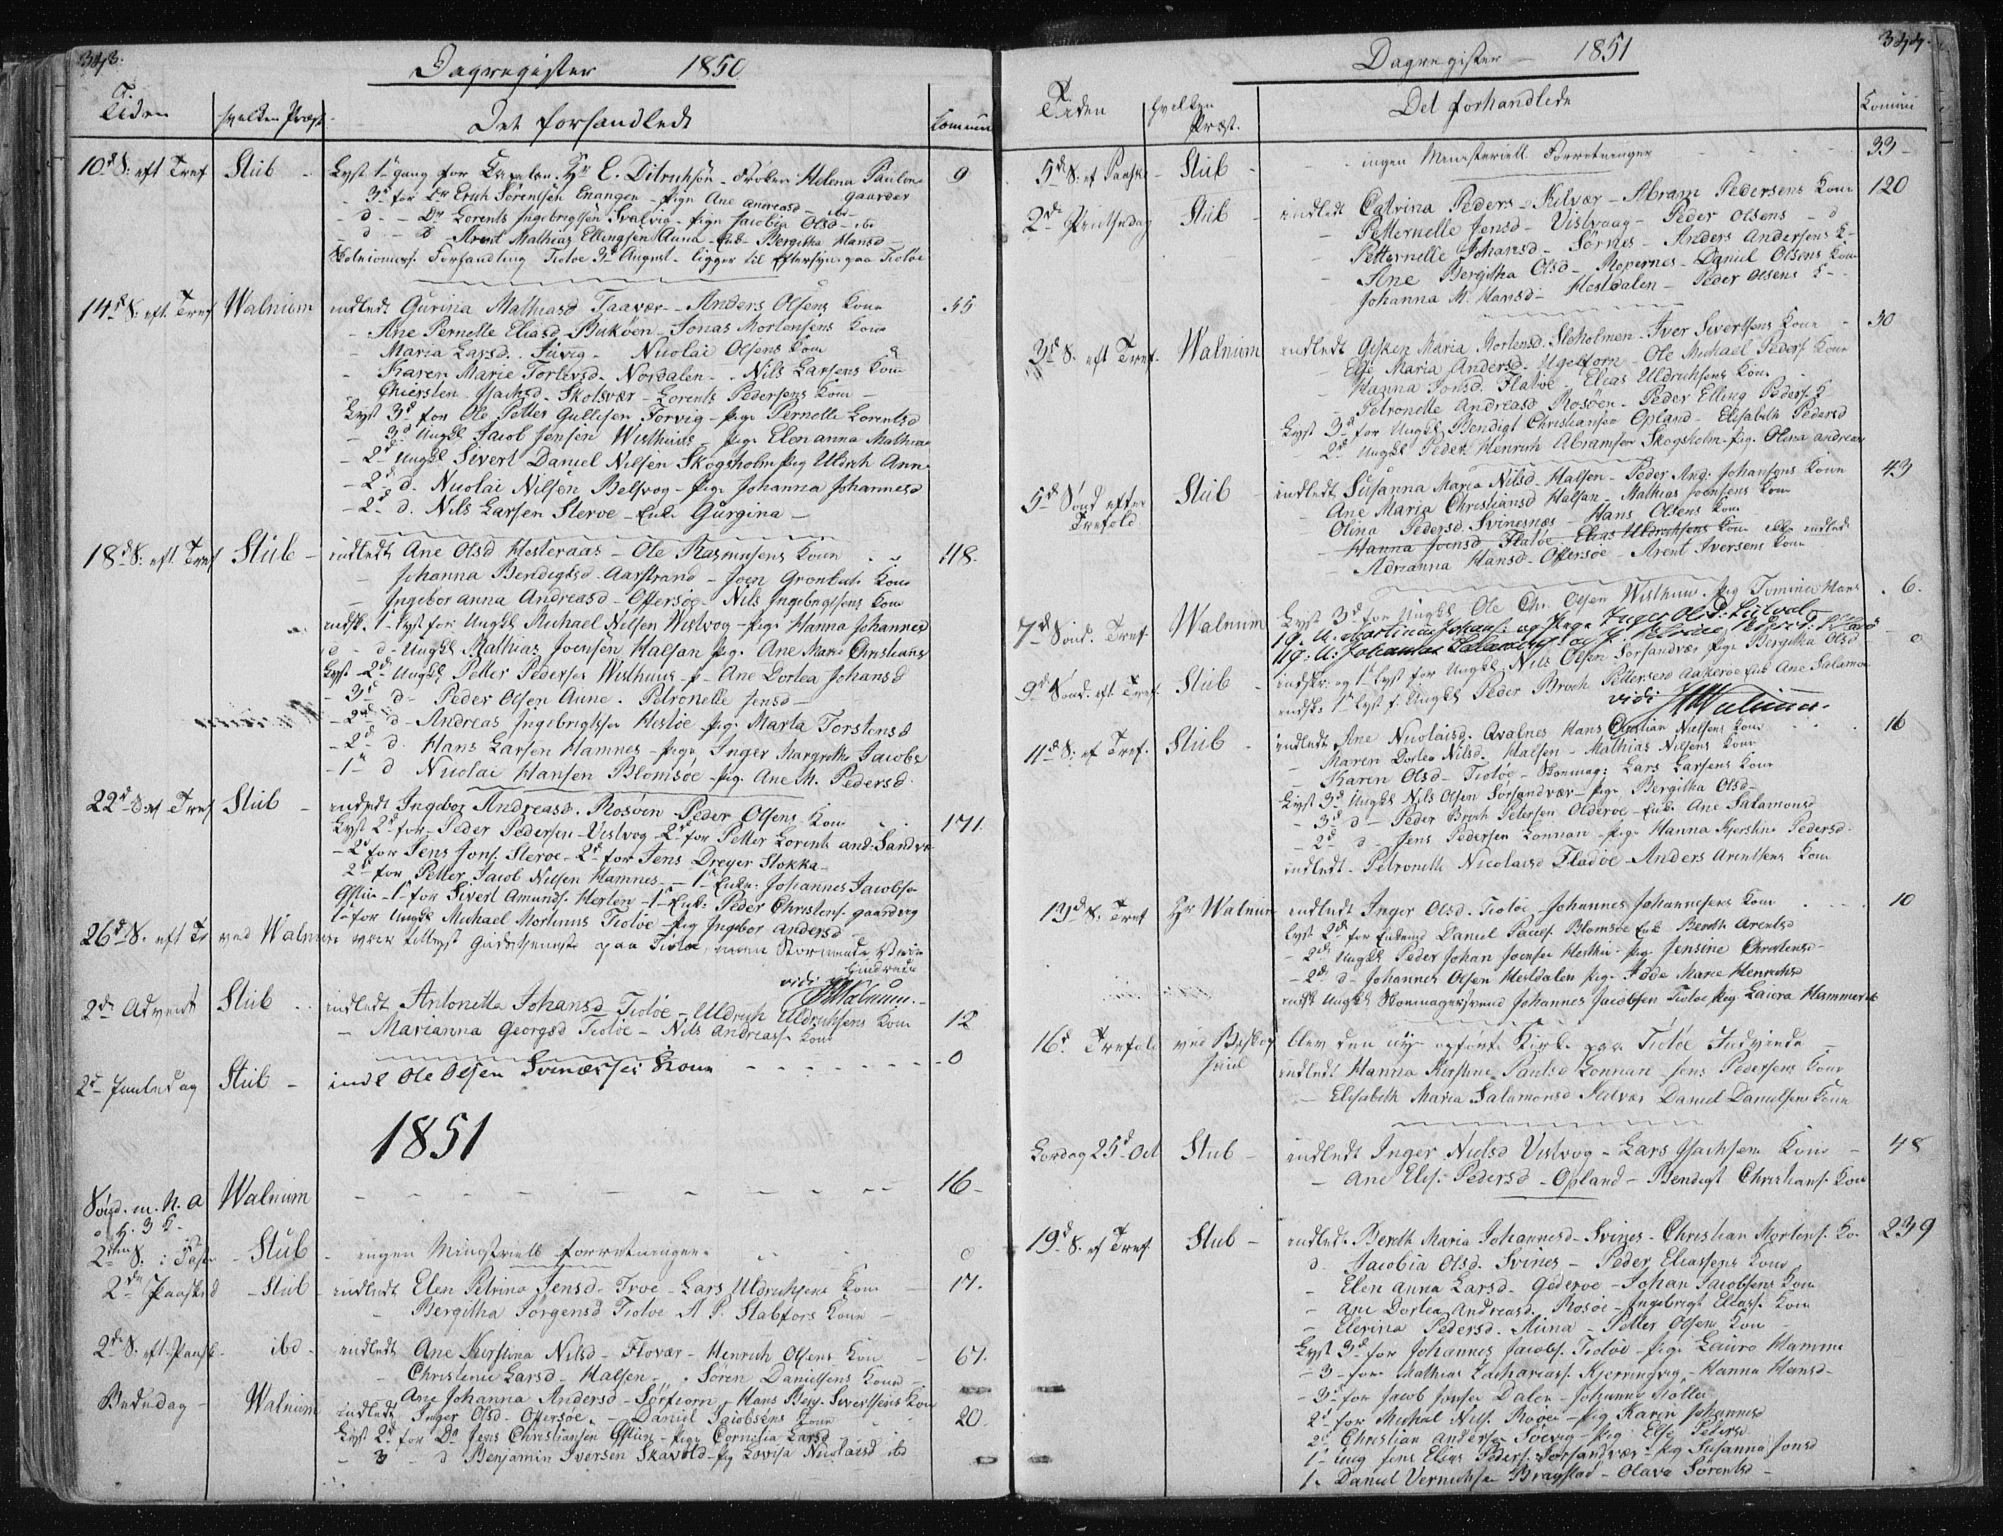 343.
Dagregister 1850
Tiden
hvilken Præst
Det forhandlede
Commun
10d S. eft Tref Stub - Lyst 1ste gang for Capelan Hr C. Ditrichsøn - Frøken Helena Pauline 9
- 3d for Dr Erich Sørensen Enangen - pige Ane Andreasd - ibi - Gaarder
- d - Dr Lorents Ingebrigtsen Svalvia - pige Jacobia Olsd - ibi
- d - D Arent Mathias Ellingsen Auna - Enk Bergitha Hansd -
Skolecomiss. Forhandling Tiotøe 3d August - ligger til Eftersyn paa Tiotøe
14d S. eft. Tref Walnum indledt Gurina Mathiasd Taavær - Anders Olsens Kone 55
- Ane Pernelle Eliasd - Bukøen - Jonas Mortensens Kone
- Maria Larsd. Juvig - Nicolai Olsens Kone
- Karen Marie Torlevsd - Nordalen - Nils Larsens Kone
- Chiersten Isachsd - Skotsvær - Lorents Pedersens Kone -
Lyst 3d for Ole Petter Gullisen Forvig - pige Pernelle Lorentsd
- 3d Ungkl Jacob Jensen Wisthuus - pige Elenanna Mathia
- 2d Ungkl Sivert Daniel Nilsen Skogsholm Pig Uldrik Ann
- 2d d. Nicolai Nilsen Belsvog - pige Johanna Johannesd
- 2d d. Nils Larsen Steroe - Enke Gurgina -
18d S. eft Tref Stub - indledt Ane Olsd Hesteraas - Ole Rasmusens Kone 48.
Johanna Bendigtsd Aarstrand - Joen Gronbeks Kone
Ingeboranna Andreasd - Offersøe - Nils Ingebrigtsens Kone
indsk. 1. Lyst for Ungkl Michael Nilsen Wistvog - pige Hanna Johannesd
d - d - Ungkl Mathias Joensen Halsan pig. Ane Mari Christians
Lyst 2d Ungkl Petter Pedersen Wisthuus - p - Ane Dortea Johansd
- 3d d - Peder Olsen Aune - Petronelle Jensd -
- 2d d - Andreas Ingebrigtsen Hestøe pig. Marta Torstensd
- 2d d. Hans Larsen Hamnes - pige Inger Margrethe Jacobs
- 1 d Nicolai Hansen Blomsøe - pig. Ane M. Pedersd
22d S. ef Tref Stub - indledt Ingebor Andreasd. Rosøen - Peder Olsens Kone 171.
Lyst 2d for - Peder Pedersen - Vistvog - 2d for Petter Lorents and. Sandvæ
- 2d for Jens Jons. Steroe - 2d for Jens Dreyer Stokka -
2d for Petter Jacob Nilsen Hamnes - 1 Enke. Johannes Jacobse
Offsøe - 1 for Sivert Amunds. Herlen - 1 Enk. Peder Christens. gaarderg
1 for Ungkl Michael Mortinus Tiotøe - pig Ingebor Andersd
26d S. eft Tr ved Walnum var tillyst Gudstjeneste paa Tiotøe, men Stormende Veir
hindrede
vidi JWalnum.
2d Advent Stub - indledt Antonetta Johansd Tiotøe - Uldrich Uldrichsens Kone 12
- Marianna Georgsd Tiotøe - Nils Andreass. Kone
2d Juuledag Stub - indl Ole Olsen Svinæsses Kone - 0
1851
Sønd. m. N. A Walnum - 16 -
o H. 3 K.
2den S. i Faste - Stub - ingen Ministerielle forretninger. 0
2den Paasked - Stub - indledt Elen Petrina Jensd. Troe - Lars Uldrichsens Kone - 17.
- Bergitha Jørgensd Tiotøe A. P. Stabfors Kone -
2d S. eft. Paask - ibd - indledt Ane Kirstina Nilsd - Flovær - Henrich Olsens Kone 67.
- Christenie Larsd - Halsen - Søren Danielsens Kone -
Bededag - Walnum Ane Johanna Andersd - Sørfiorn - Hans Berg. Sivertsens Kon
indledt Inger Olsd - Offersøe - Daniel Jacobsens Kone 20.
Lyst 2d for Do Jens Christiansen Offsøe - pige Cornelia Larsd
- 3 - d Benjamin Iversen Skavold - pig Lovisa Nicolaisd ibd
344.
Dagregister 1851
Tiden
hvilken Præst.
Det forhandlede
Comuni
5d S. ef Paaske - Stub - ingen Ministeriell Forretninger - 33 -
2d Pintsedag Stub - indledt Catrina Peders - Skilvær - Abram Pedersens Kone 120
- Petternelle Jensd - Vistvaag - Peder Olsens - d
- Petternelle Johansd - Sørnes - Anders Andersens K -
- Ane Bergitha Olsd - Ropernes - Daniel Olsens Kone
Johanna M. Hansd - Hestdalen - Peder Olsens K -
3d S. eft Tref. Walnum indledt Gisken Maria Mortensd. Stoholmen - Iver Sivertsens Kone - 30
- Else Maria Andersd. Ugeltorn - Ole Michael Peders. Kone
- Hanna Jonsd. Flatøe - Elias Uldrichsens Kone
- Petronelle Andreasd Rosøen - Peder Elling Peders. K
Lyst 3d for Ungkl Bendigt Christiansen Opland - Elisabeth Pedersd
2d Ungkl Peder Henrich Abramsen Skogsholm pig. Olina Andreas
5d Sønd efter Trefold. Stub - indledt Susanna Maria Nilsd - Halsen - Peder And. Johansens Kone 43
- Ane Maria Christiansd Halsan - Mathias Joensens Kone
Olina Pedersd. Svinesnæs - Hans Olsens Kone
- Hanna Joensd Flatøe. Elias Uldrichsens Kone ikke indledt
- Adrianna Hansd - Offersøe - Arent Iversens Kone
7d Sønd. Tref. Walnum Lyst 3d for Ungkl Ole Chr. Olsen Wisthuus. pig Tomina Hans - 6.
1g. U. Martinus Johans. og Pige Inger Olsd. Leilvol
9d Sønd. eft Tref Stub - indskr. og 1 Lyst for Ungkl Nils Olsen Sørsandvær pige Bergitha Olsd 0
indsk. 1 Lyst f. Ungkl Peder Broch Pettersen Aakerøe Enk Ane Salamon
vidi JWalnum.
11d S. ef Tref. Stub - indledt Ane Nicolaisd. Qvalnes Hans Christian Nielsens Kone 16
- Maren Dortea Nilsd. Halsen - Mathias Nilsens Kone
- Karen Olsd - Tiotøe - Skomag. Lars Larsens Kone
Lyst 3d Ungkl Nils Olsen Sørsandvær - pige Bergitha Olsd -
- 3d d - Peder Broch Petersen Olderoe - Enke Ane Salamonsd
- 2d d - Jens Pedersen Lonnan - pige Hanna Kjerstine Pedersd.
indledt - Petronelle Nicolaisd Fladøe - Anders Arentsens Kone
13d S. Tref Hr Walnum indledt Inger Olsd. Tiotøe - Johannes Johannesens Kone 10
Lyst 2d for Enkemd Daniel Paels. Blomsøe Enk Bereth Arentsd
- 2d Ungkl Peder Johan Joensen Hesthu - pig Jensine Christensd -
- 2d d - Johannes Olsen Hestdalen pige Adde Marie Henrichsd
indsk Ungkl Skomagersvend Johannes Jacobsen Tiotøe pig Laura Hammerst
16d Trefold ved Biskop Juul blev den nye opførte Kirke paa Tiotøe Indviede
indledt Hanna Kirstine Paulsd Lonnan - Jens Pedersens Kone
- Elisabeth Maria Salamonsd Skilvær Daniel Danielsens Kone
Lørdag 25d Oct Stub - indledt Inger Nielsd Vistvog - Lars Isachsens Kone - 48
- Ane Elis. Pedersd - Opland - Bendigt Christians. Kone
19d S. ef Tref. Stub - indledt Bereth Maria Johannesd - Svines - Christian Mortens. Ko. 239
d. Jacobia Olsd. Svines - Peder Eliassens Kone
- Elen Anna Larsd - Gederøe - Johan Jacobsens Kone
- Ane Dortea Andreasd. Rosøe - Ingebrigt Eliass. Kone
- Elerina Pedersd. Auna - Petter Olsens Kone -
Lyst 3d for Johannes Jacobs. Tiotøe - pige Lauro Hamme
- 3 - for Mathias Zachariass. Kjerringvig - Hanna Hansd -
- 3d for Jacob Jensen Dalen - Johanne Stolte
2d for Michal Nils. Rosøe - pig Karen Johannesd
2d Christian Andersen Soevig - pig Else Pedersd
1 - Ung Jens Elias Peders. Sørsandvær - pig Susanna Jonsd
1 - Daniel Vernichsen Braystad - Olava Sørentsd -